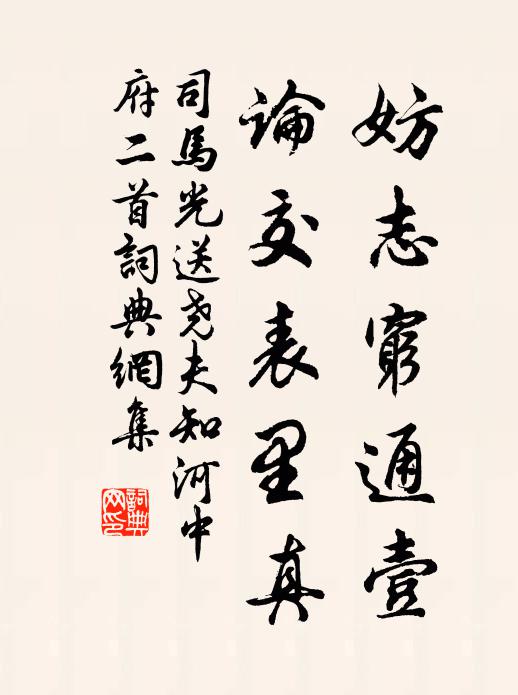 妨志窮通壹
論交表里真
司馬光送尧夫知河中
府二首詞典網集
詞典
网印